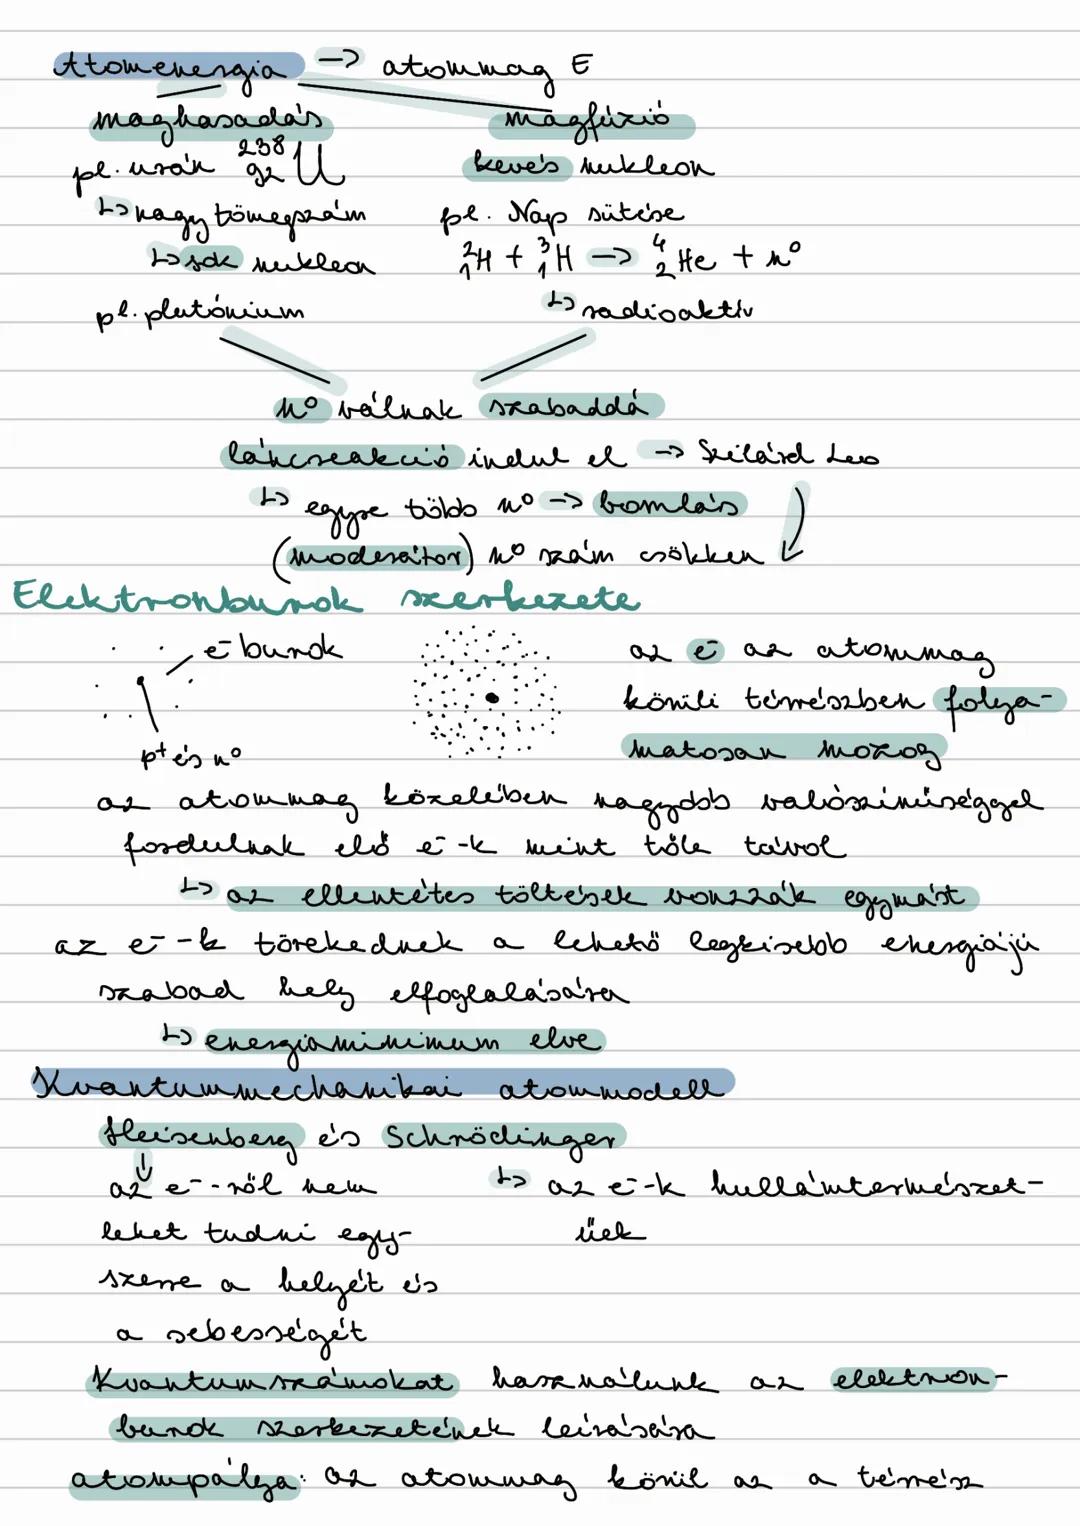 Atomenergia -> atommag E
maghasadás magfúzió
pl. urán ²³⁸₉₂U kevés nukleon
↳ nagy tömegszám pl. Nap sütése
↳ sok nukleon ²₁H + ³₁H -> ⁴₂He + n⁰
pl. plutónium ↳ radioaktív
n⁰ válnak szabaddá
láncreakció indul el -> Szilárd Leo
↳ egyre több n⁰ -> bomlás
(moderátor) n⁰ szám csökken
Elektronburok szerkezete
e⁻ burok
p⁺ és n⁰
az e⁻ az atommag
körüli térrészben folya-
matosan mozog
az atommag közelében nagyobb valószínűséggel
fordulnak elő e⁻-k mint tőle távol
↳ az ellentétes töltések vonzzák egymást
az e⁻-k törekednek a lehető legkisebb energiájú
szabad hely elfoglalására
↳ energiaminimum elve
Kvantummechanikai atommodell
Heisenberg és Schrödinger
az e⁻-ről nem
lehet tudni egy-
szerre a helyét és
a sebességét
↳ az e⁻-k hullámtermészet-
űek
Kvantumszámokat használunk az elektron-
burok szerkezetének leírására
atompálya: az atommag körül az a térrész